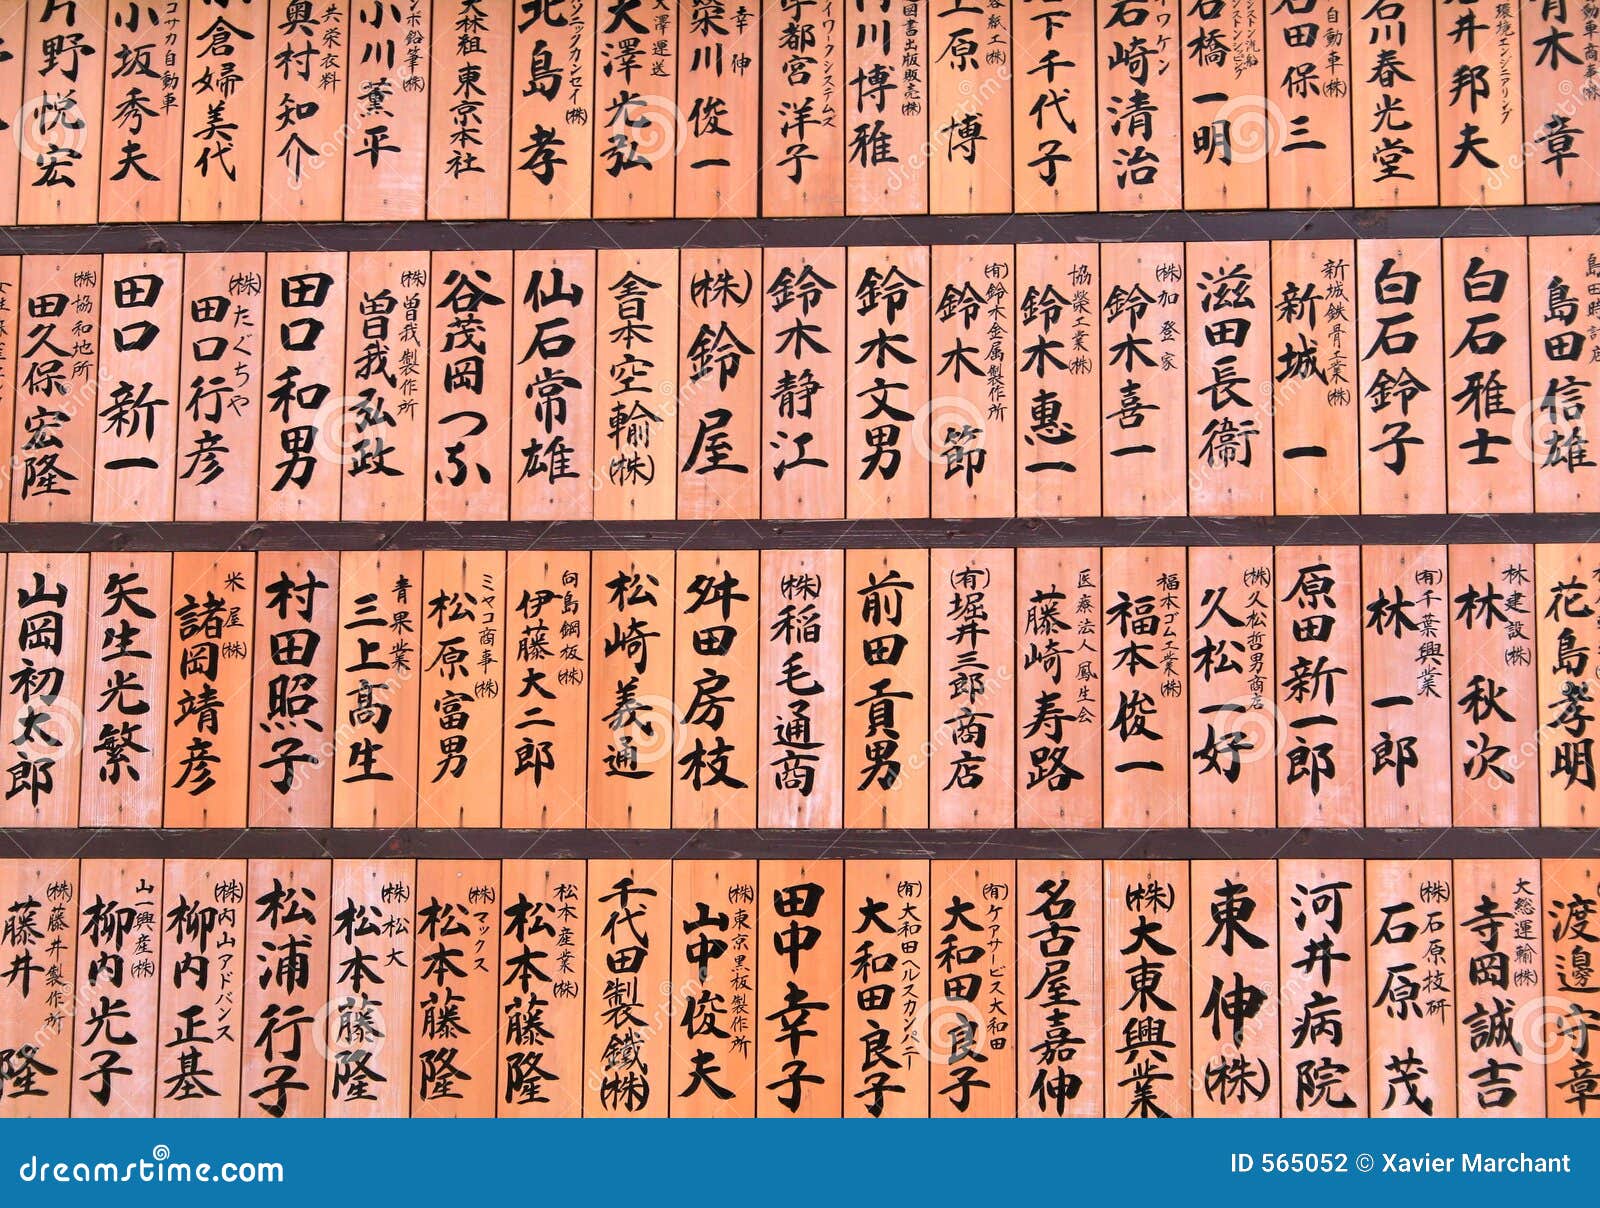 青木 章
環境エンジニアリング
井邦夫
石川春光堂
自動車(株)
石田保三
石橋一明
イワケン
石崎清治
下千代子
紙工(株)
上原 博
図書出版販売(株)
川博雅
イワークシステムズ
宇都宮洋子
幸伸
榮川俊一
大澤運送
大澤光弘
ソニックカンセイ(株)
北島 孝
大林組東京本社
ンボ鉛筆(株)
小川薫平
共栄衣料
奥村知介
小倉婦美代
コサカ自動車
小坂秀夫
片野悦宏
島田時計店
島田信雄
白石雅士
白石鈴子
新城鉄骨工業(株)
新城 一
滋田長衞
(株)加登家
鈴木喜一
協榮工業(株)
鈴木惠一
(有)鈴木金属製作所
鈴木 節
鈴木文男
鈴木静江
(株)鈴屋
全日本空輸(株)
仙石常雄
谷茂岡つふ
(株)曽我製作所
曽我弘政
田口和男
(株)たぐちや
田口行彦
田口新一
(株)協和地所
田久保宏隆
花島孝明
林建設(株)
林 秋次
(有)千葉興業
林 一郎
原田新一郎
(株)久松哲男商店
久松一好
福本ゴム工業(株)
福本俊一
医療法人鳳生会
藤崎寿路
(有)堀井三郎商店
前田貢男
(株)稲毛通商
舛田房枝
松崎義通
向島鋼板(株)
伊藤大二郎
ミヤコ商事(株)
松原富男
青果業
三上高生
村田照子
米屋(株)
諸岡靖彦
矢生光繁
山岡初太郎
渡邊守章
大総運輸(株)
寺岡誠吉
(株)石原技研
石原 茂
河井病院
東伸(株)
(株)大東興業
名古屋嘉伸
(有)ケアサービス大和田
大和田良子
(有)大和田ヘルスカンパニー
大和田良子
田中幸子
(株)東京黒板製作所
山中俊夫
千代田製鐵(株)
松本産業(株)
松本藤隆
(株)マックス
松本藤隆
(株)松大
松本藤隆
松浦行子
(株)内山アドバンス
柳内正基
山一興産(株)
柳内光子
(株)藤井製作所
藤井 隆
dreamstime.com
ID 565052 © Xavier Marchant